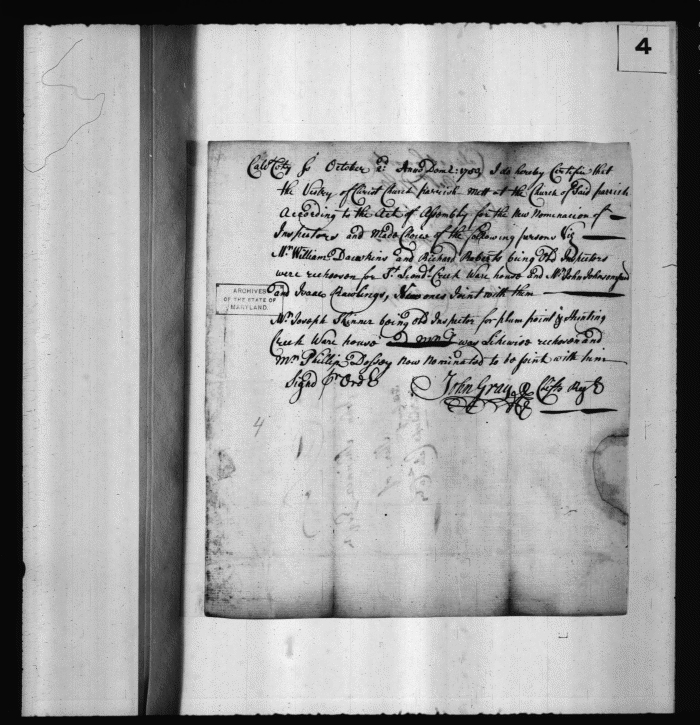 4
Calvt. Coty ss October 2d: Anno Dom: 1753, I do hereby Certifie that
the Vestry of Christ Church parrish mett at the Church of Said parrish
According to the Act of Assembly for the New Nomination of
Inspectors and Made Choice of the following persons Viz
Mr. William Dawkins and Richard Roberts being Old Inspectors
were rechosen for St. Leond. Creek Ware house and Mr. John
and Isaac Rawlings, New ones Joint with them
ARCHIVES
OF THE STATE OF
MARYLAND.
Mr. Joseph Skinner being old Inspector for plum point & Hunting
Creek Ware house was Likewise rechosen and
Mr. Phillip Dossey Now Nominated to be Joint with him
Signd pr Order
John Gray Regr
4